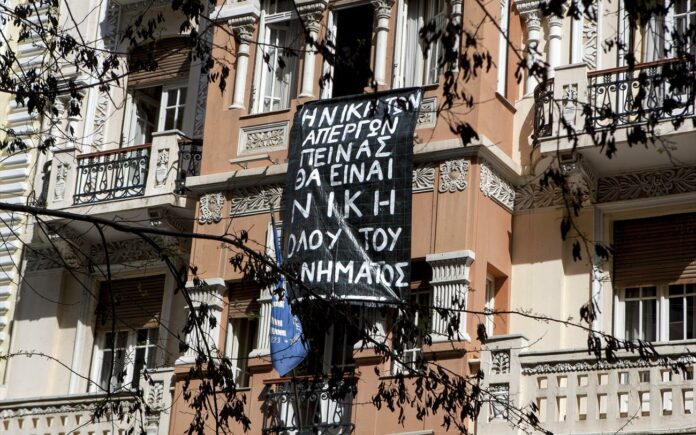 Η ΝΙΚΗ ΤΩΝ
ΑΠΕΡΓΩΝ
ΠΕΙΝΑΣ
ΘΑ ΕΙΝΑΙ
ΝΙΚΗ
ΟΛΟΥ ΤΟΥ
ΚΙΝΗΜΑΤΟΣ